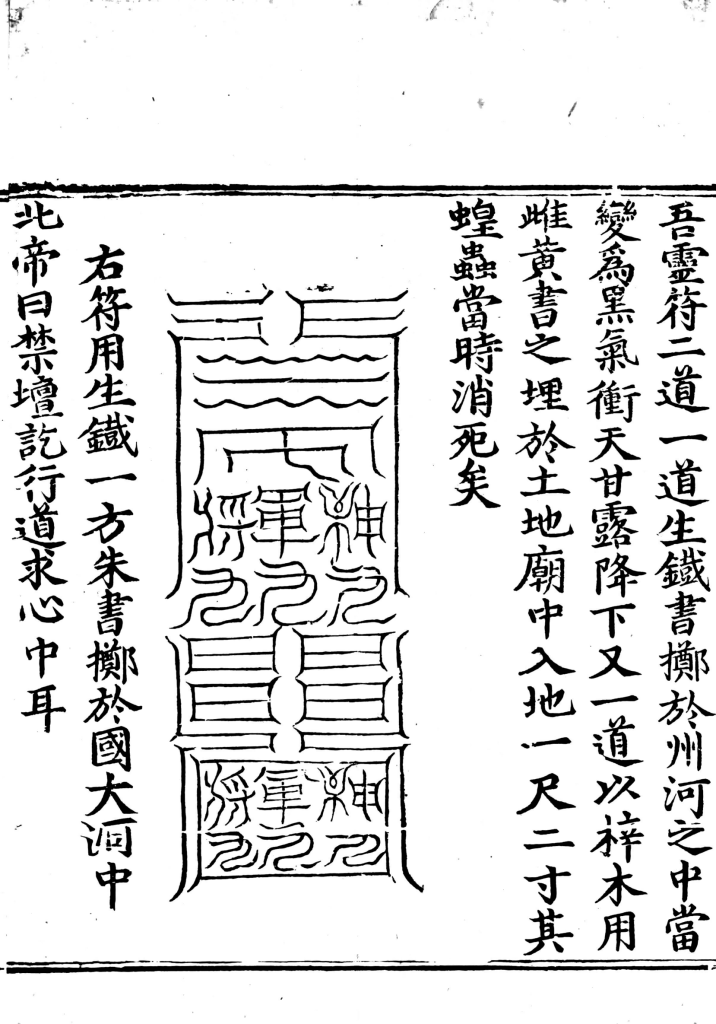 吾靈符二道一道生鐵書擲於州河之中當
變爲黑氣衝天甘露降下又一道以梓木用
雌黃書之埋於土地廟中入地一尺二寸其
蝗蟲當時消死矣
神軍將
神軍將
右符用生鐵一方朱書擲於國大洞中
北帝曰禁壇訖行道求心中耳